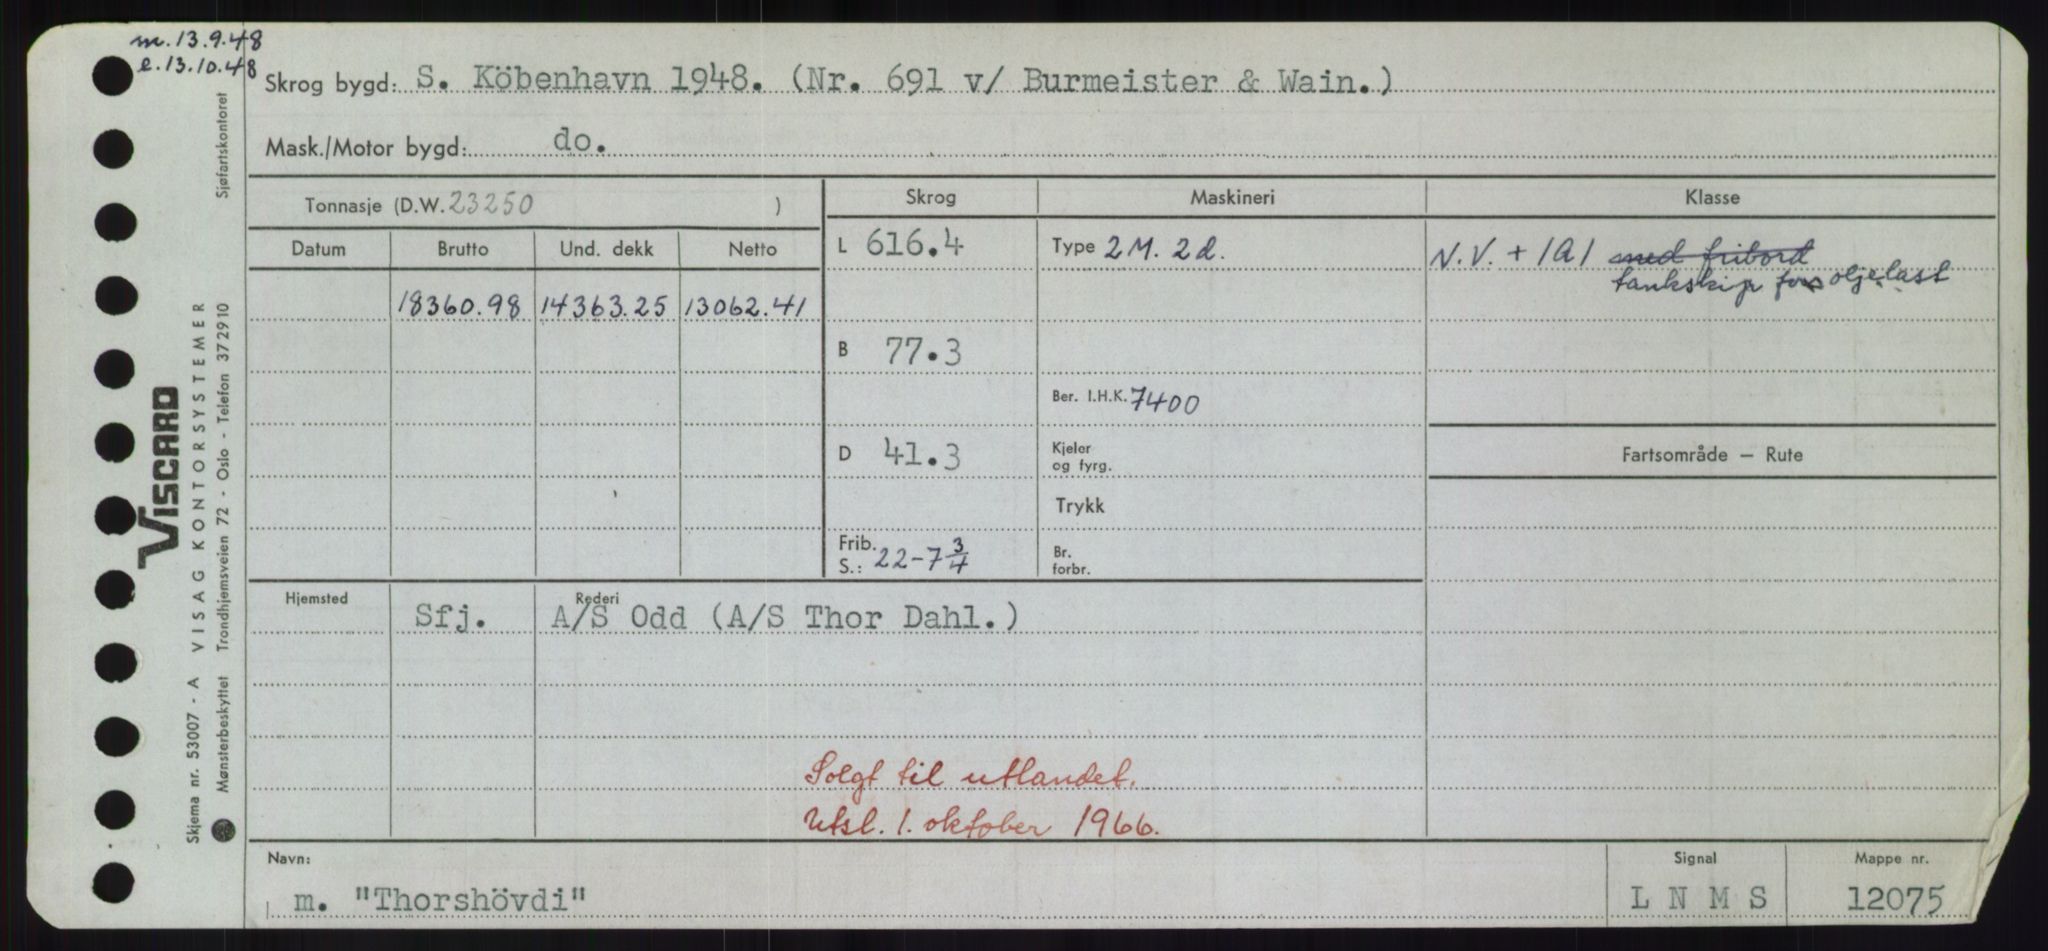 m. 13.9.48
e. 13.10.48
Skrog bygd: S. Köbenhavn 1948. (Nr. 691 v/ Burmeister & Wain.)
Mask./Motor bygd: do.
Tonnasje (D.W. 23250 )
Skrog Maskineri Klasse
Datum Brutto Und. dekk Netto
L 616.4 Type 2 M. 2 d. N.V. + 1A1 med fribord
tankskip for oljelast
18360.98 14363.25 13062.41
B 77.3
Ber. I.H.K. 7400
D 41.3 Kjeler
og fyrg.
Fartsområde – Rute
Trykk
Frib.
S.: 22-7 3/4 Br.
forbr.
Hjemsted Rederi
Sfj. A/S Odd (A/S Thor Dahl.)
Solgt til utlandet.
Utsl. 1. oktober 1966.
Navn: Signal Mappe nr.
m. "Thorshövdi" L N M S 12075
VISCARD
Skjema nr. 53007 - A VISAG KONTORSYSTEMER
Mønsterbeskyttet Trondhjemsveien 72 - Oslo - Telefon 372910 Sjøfartskontoret